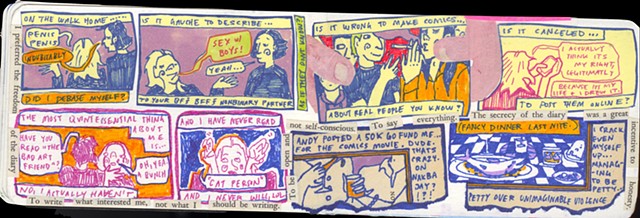 ON THE WALK HOME....
PENIS
PENIS
INEVITABLY
DID I DEBASE MYSELF?
IS IT GAUCHE TO DESCRIBE...
SEX W/
BOYS!
YEAH...
TO YOUR GFF BFF? NONBINARY PARTNER
IS IT WRONG TO MAKE COMICS...
ABOUT REAL PEOPLE YOU KNOW?
IS IT CANCELED...
I ACTUALLY
THINK IT'S
MY RIGHT,
LEGITIMATELY
BECAUSE ITS MY
LIFE & I DREW IT.
TO POST THEM ONLINE?
preferred the freedom
of the diary
THE MOST QUINTESSENTIAL THING
ABOUT
ME
IS...
HAVE YOU
READ "THE
BAD ART
FRIEND"?
OH, YEA
A BUNCH
NO, I ACTUALLY HAVEN'T
AND I HAVE NEVER READ
"CAT PERSON"
AND I NEVER WILL, LOL
To write what interested me, not what I should be writing.
not self-conscious. To say everything.
The secrecy of the diary was a great
ANDY POSTED A 50K GO FUND ME
FOR THE COMICS MOVIE. DUDE.
THAT'S
CRAZY.
ON
NAKBA
DAY?
!?!?
FANCY DINNER LAST NITE.
I CRACK
MYSELF
UP...
MANAG-
ING
TO BE
PETTY..
PETTY OVER UNIMAGINABLE VIOLENCE
incentive to